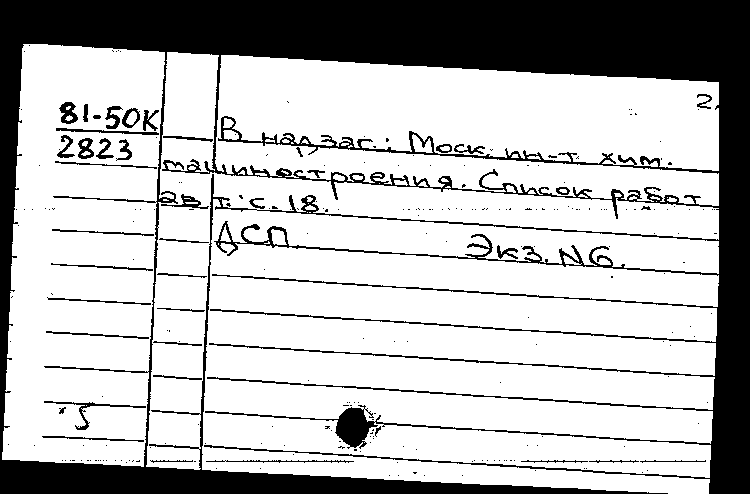 2.
81-50К
2823
В надзаг.: Моск. ин-т хим.
машиностроения. Список работ
авт.: с. 18.
ДСП. Экз. N6.